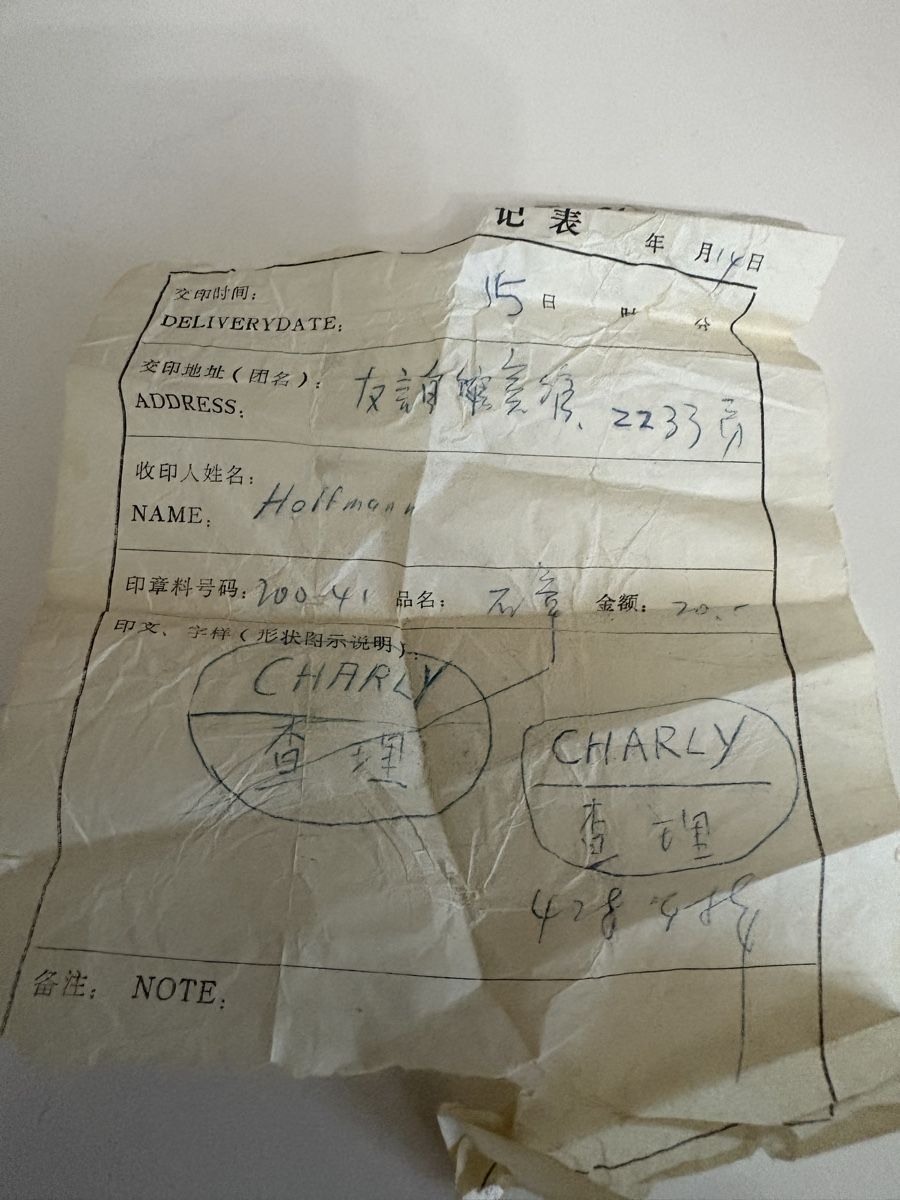 记表
年 月14日
交印时间: 15日 时 分
DELIVERYDATE:
交印地址(团名): 友谊宾馆 2233房
ADDRESS:
收印人姓名:
NAME: Hoffmann
印章料号码: 200-41 品名: 石章 金额: 20.-
印文、字样(形状图示说明):
CHARLY
查理
CHARLY
查理
备注: NOTE: